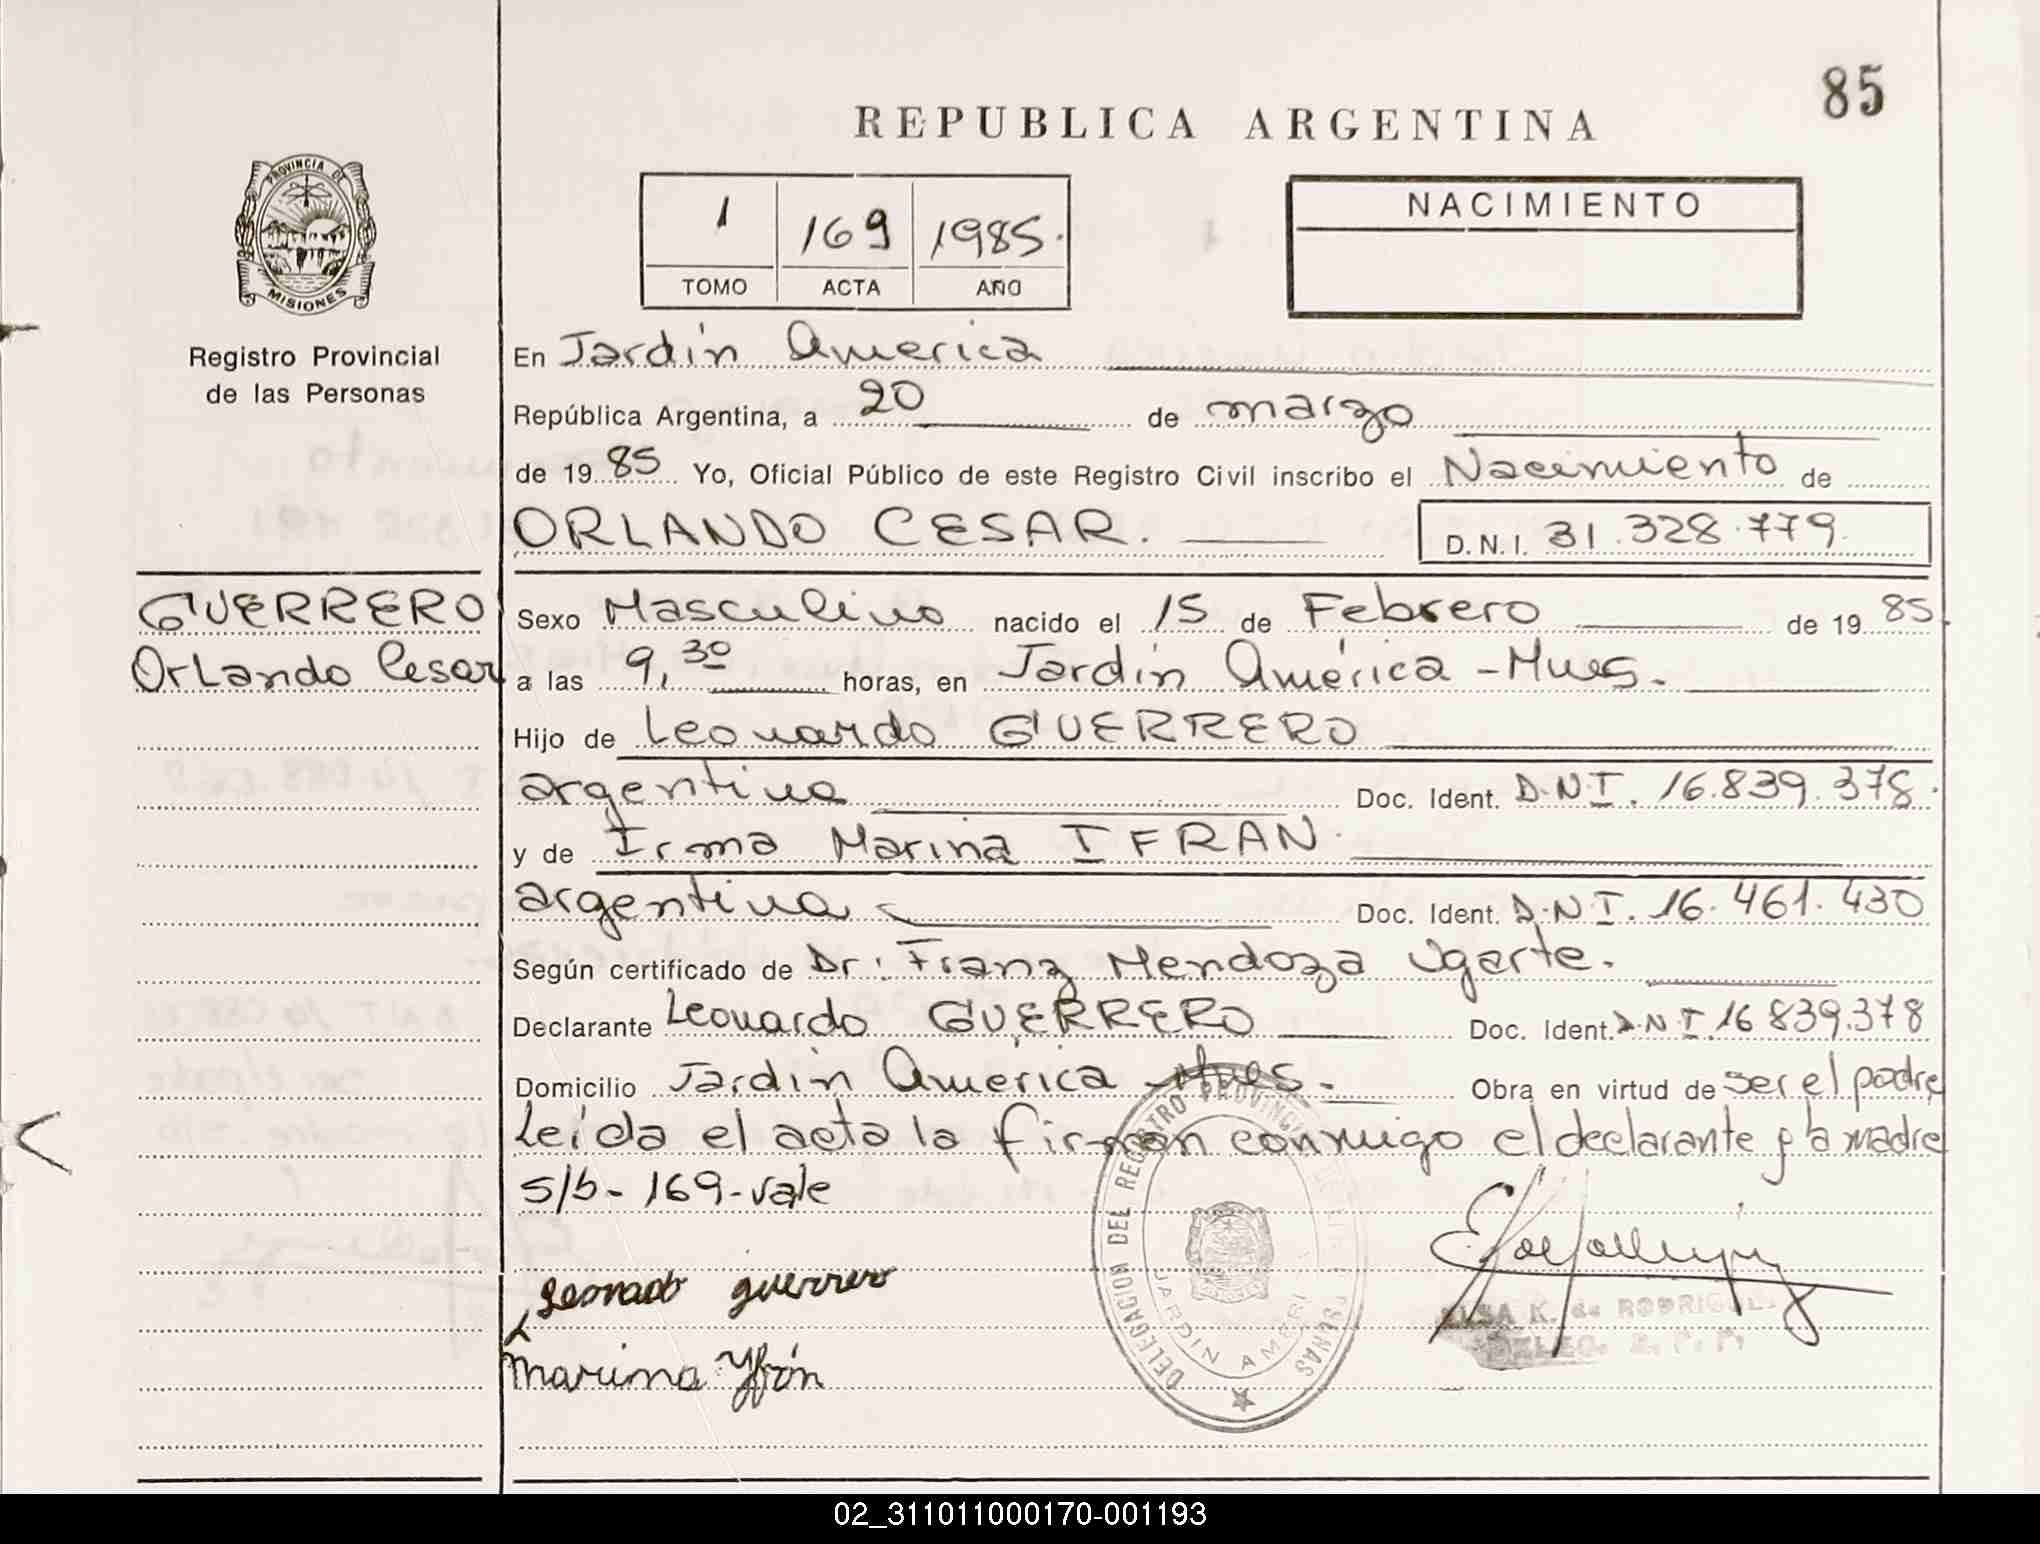 85
REPUBLICA ARGENTINA
PROVINCIA DE
MISIONES
Registro Provincial
de las Personas
1 169 1985.
TOMO ACTA AÑO
NACIMIENTO
En Jardin America
República Argentina, a 20 de marzo
de 19 85 Yo, Oficial Público de este Registro Civil inscribo el Nacimiento de
ORLANDO CESAR. D.N.I. 31.328.779
GUERRERO
Orlando Cesar
Sexo Masculino nacido el 15 de Febrero de 19 85
a las 9,30 horas, en Jardin América - Mnes.
Hijo de Leonardo GUERRERO
argentino Doc. Ident. D.N.I. 16.839.378.
y de Irma Marina IFRAN
argentina Doc. Ident. D.N.I. 16.461.430
Según certificado de Dr: Franz Mendoza Ugarte.
Declarante Leonardo GUERRERO Doc. Ident. D.N.I. 16 839.378
Domicilio Jardin América - Mnes. Obra en virtud de ser el padre
Leida el acta la firman conmigo el declarante y la madre
s/b - 169 - vale
Leonado guerrero
Marina Yfrán
DELEGACION DEL REGISTRO PROVINCIAL
JARDIN AMERI
ELSA K. de RODRIGUEZ
02_311011000170-001193